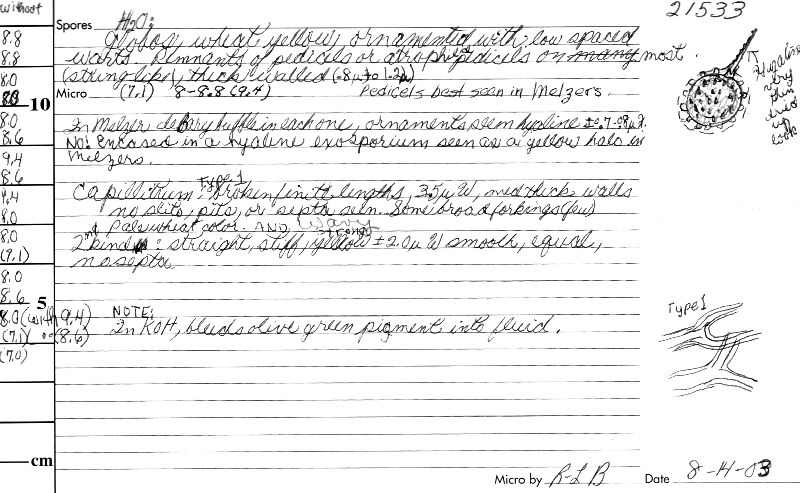 without
21533
Spores H2O:
Globose, wheat yellow, ornamented with low spaced
warts. Remnants of pedicels or atrophied pedicels on many most.
(string like), thick walled (.8µ to 1.2µ)
Micro (7.1) 8-8.8 (9.4) Pedicels best seen in Melzers.
In Melzer debary bubble in each one, ornaments seem hyaline ± 0.7-.08µ
NO! Encased in a hyaline exosporium seen as a yellow halo in
Melzers.
Type 1
Capillitium: broken finite lengths, 3.5µ W, med thick walls
no slits, pits, or septa seen. Some broad forkings (few)
Pale wheat color. AND wavy
strong
2nd kind: straight, stiff, yellow ± 2.0µ W smooth, equal,
no septa.
NOTE:
In KOH, bleeds olive green pigment into fluid.
8.8
8.8
8.0
8.8
10
8.0
8.6
9.4
8.6
9.4
8.0
8.0
(7.1)
8.0
8.6
5
8.0 (with 9.4)
(7.1) (8.6)
(7.0)
cm
Hyaline
very
thin
dried
up
look
Type 1
Micro by R L B Date 8-14-03